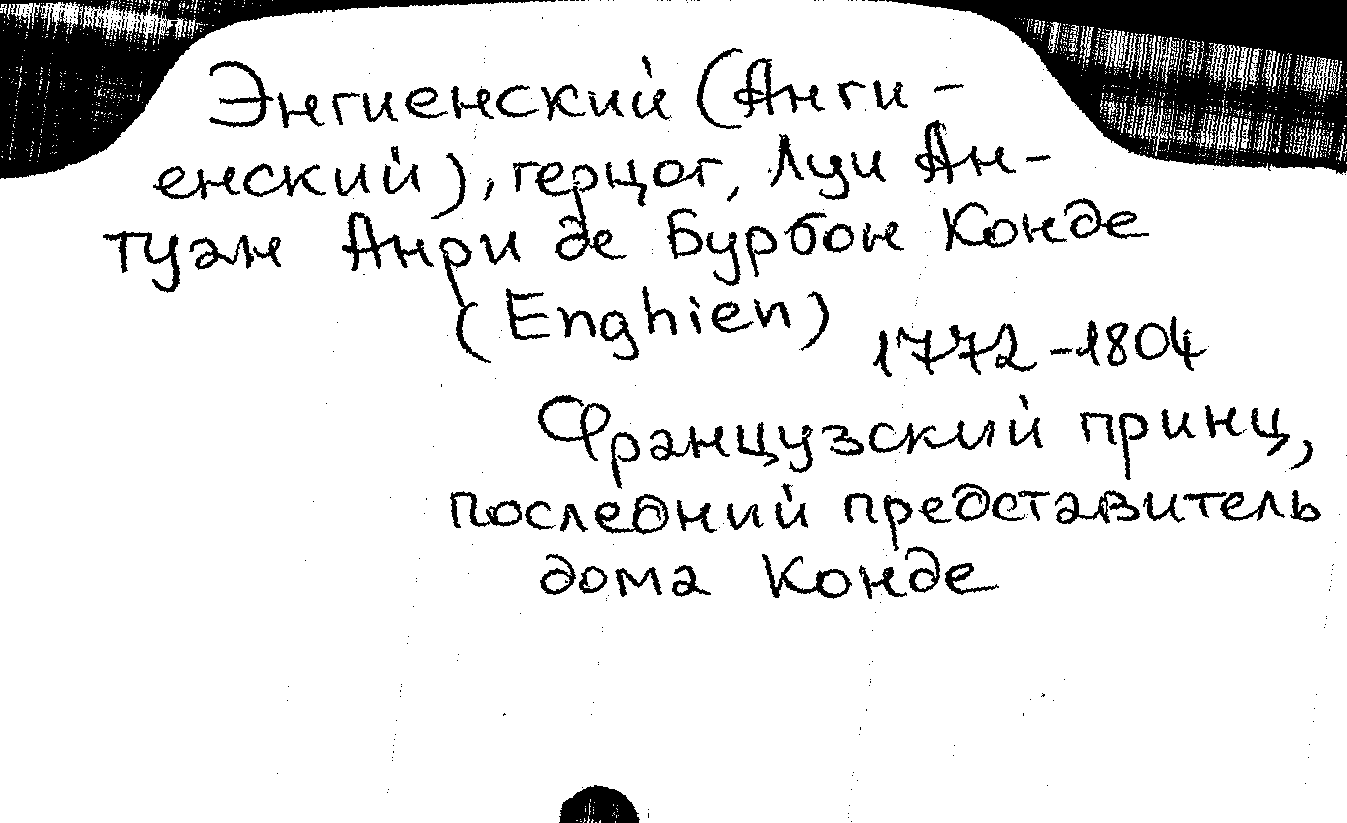 Энгиенский (Анги-
енский), герцог, Луи Ан-
туан Анри де Бурбон Конде
(Enghien)
1772-1804
Французский принц,
последний представитель
дома Конде